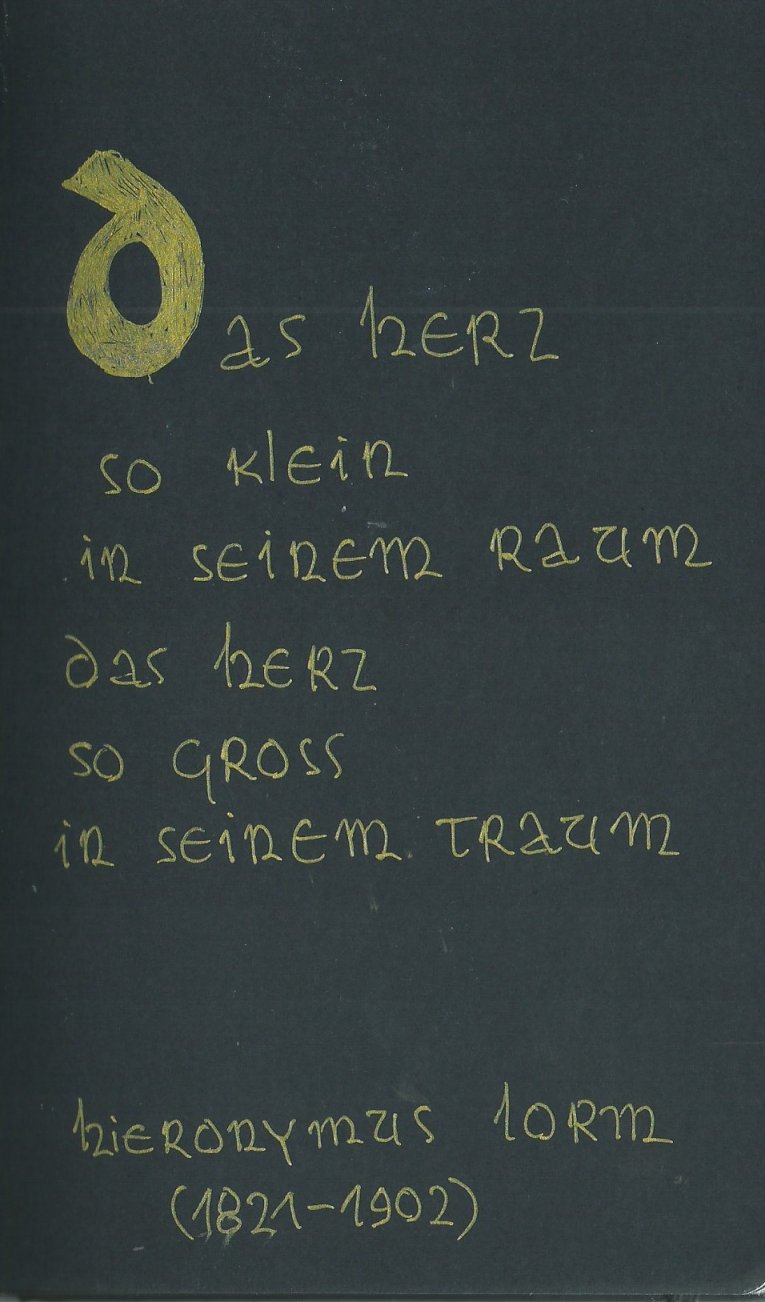 Das Herz
so klein
in seinem Raum
das Herz
so gross
in seinem Traum
Hieronymus Lorm
(1821-1902)